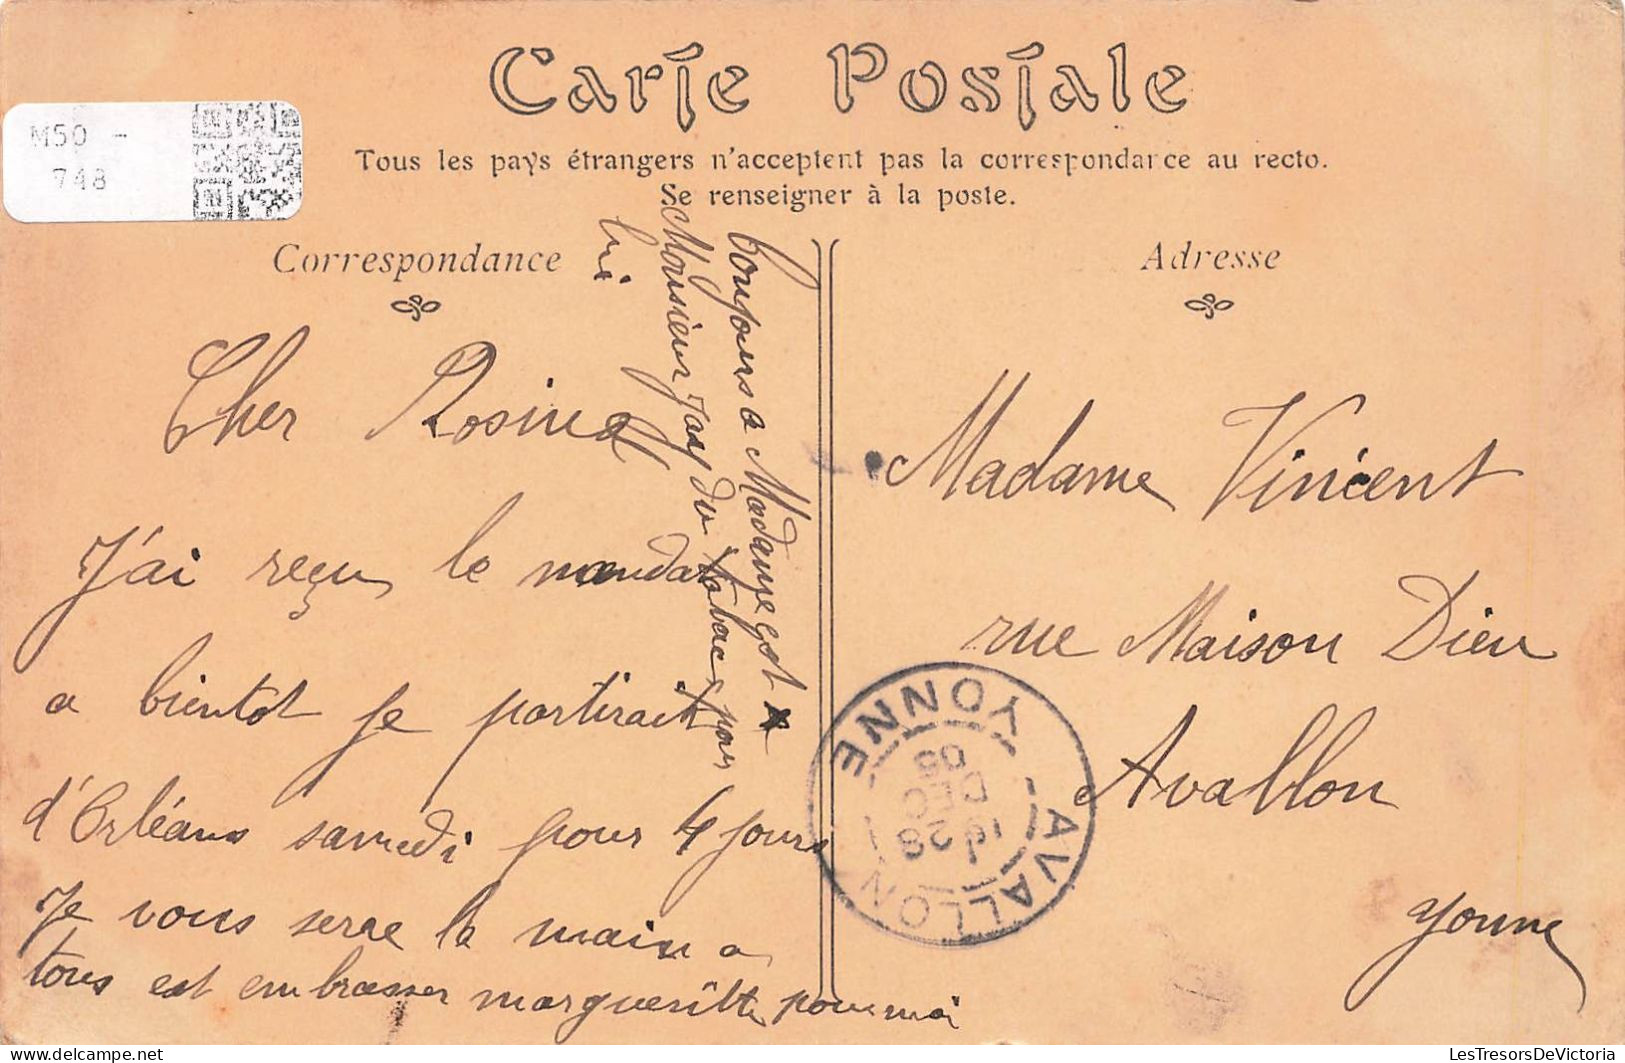 Carte Postale
Tous les pays étrangers n'acceptent pas la correspondance au recto.
Se renseigner à la poste.
M50 -
748
Correspondance
Adresse
Cher
J'ai reçu le mandat
a bientot je partirait
d'Orléans samedi pour 4 jours
Je vous serre la main a
tous est embrasser margueritte pour moi
bonjours a Madame est
Monsieur Jay du tabac pour
lui
Madame Vincent
rue Maison Dieu
Avallon
Yonne
AVALLON
YONNE
28
DEC
05
LesTresorsDeVictoria
www.delcampe.net